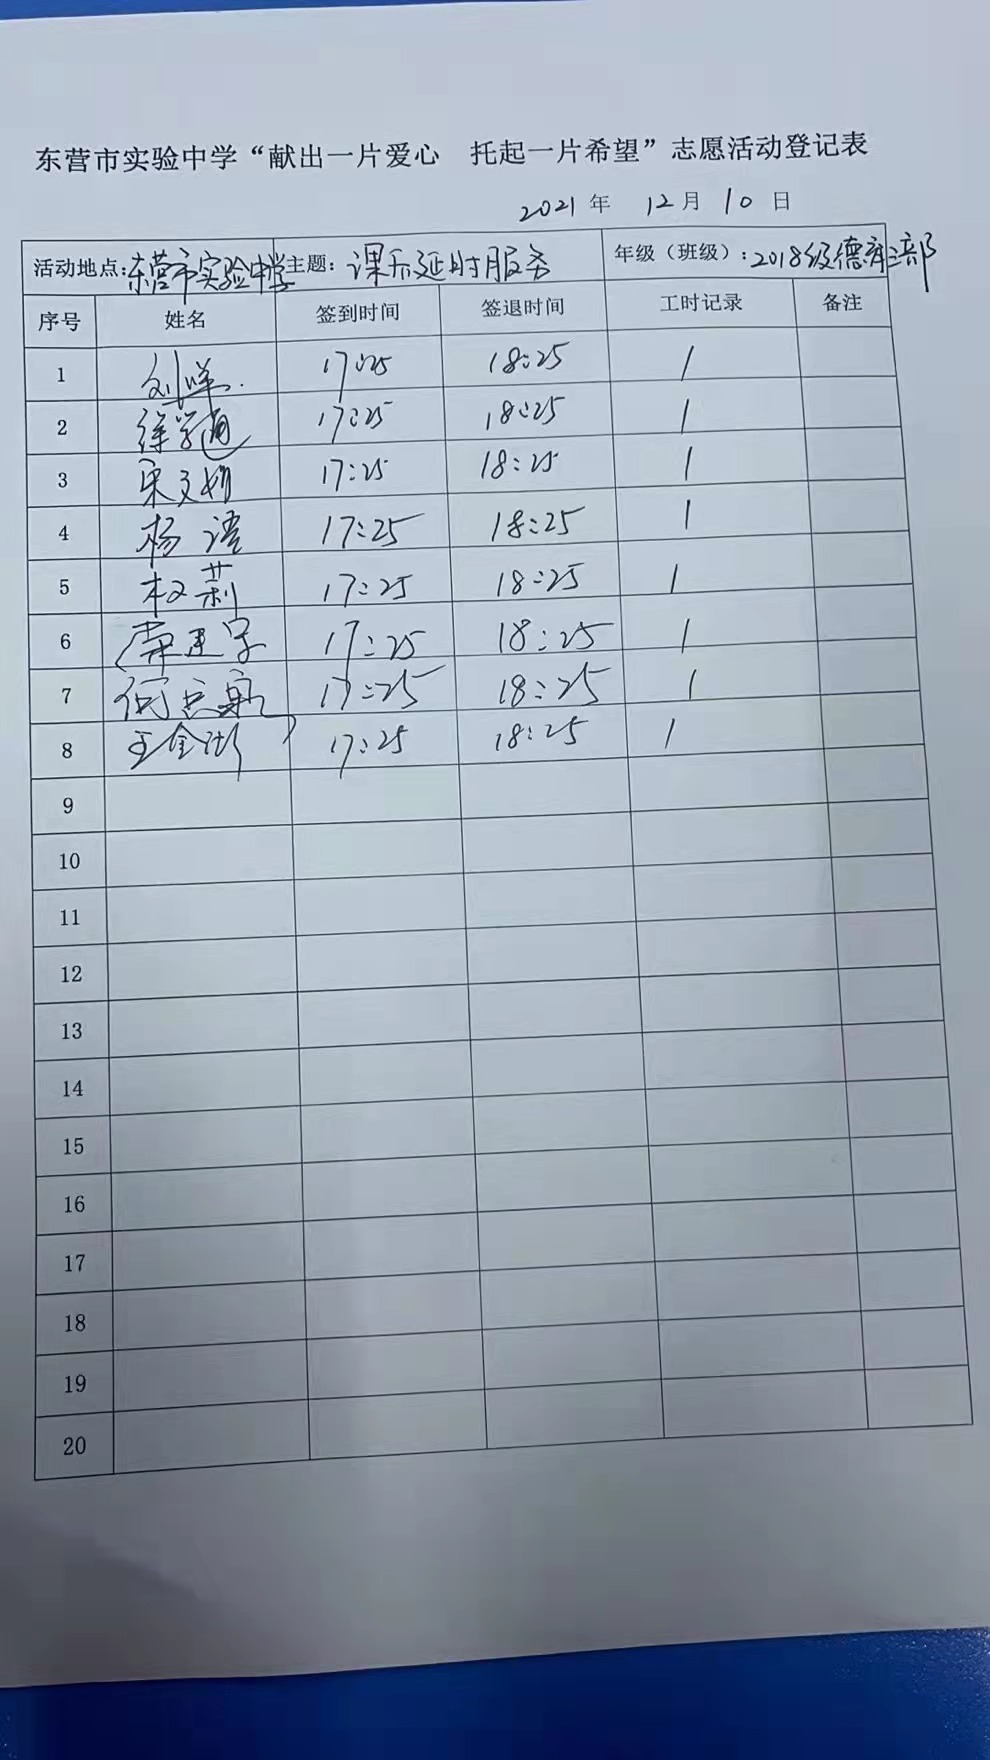 东营市实验中学“献出一片爱心 托起一片希望”志愿活动登记表
2021年 12月 10日
活动地点:东营市实验中学 主题:课后延时服务 年级（班级）:2018级德育三部
序号 姓名 签到时间 签退时间 工时记录 备注
1 17:25 18:25 1
2 徐学通 17:25 18:25 1
3 宋文娟 17:25 18:25 1
4 杨 17:25 18:25 1
5 权莉 17:25 18:25 1
6 17:25 18:25 1
7 何志敏 17:25 18:25 1
8 王金 17:25 18:25 1
9
10
11
12
13
14
15
16
17
18
19
20